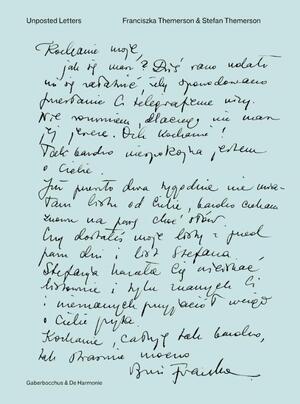 Unposted Letters
Franciszka Themerson & Stefan Themerson
Kochanie moje,
jak się masz? Dziś rano udało
mi się załatwić, żeby spowodowano
przesłanie Ci telegraficzne wizy.
Nie rozumiem, dlaczego nie masz
jej jeszcze. Och kochanie!
Tak bardzo niespokojna jestem
o Ciebie.
Już prawie dwa tygodnie nie mia-
łam listu od Ciebie, bardzo czekam
znowu na parę choć słów.
Czy dostałeś moje listy z przed
paru dni i list Stefana.
Stefania kazała Cię uściskać,
i tylu znanych Ci
i nieznanych przyjaciół wciąż
o Ciebie pyta.
Kochanie, całuję tak bardzo,
tak strasznie mocno
Franka
Gaberbocchus & De Harmonie